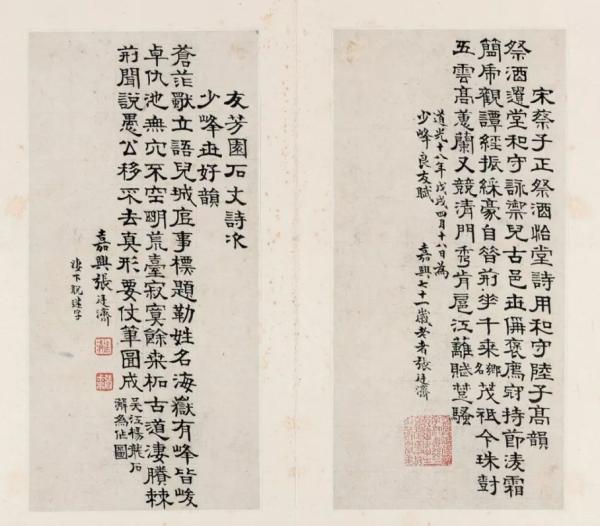 宋蔡子正祭酒怡堂詩用和守陸子高韻
祭酒運堂和守詠禦兒古邑世褒薦守持節凌霜
簡觀譚經振綵豪自前坐千來鄉名茂祗今珠封
五雲高蕙蘭又競清門秀肯扈江蘺賦楚騷
道光十八年戊戌四月十八日為
少峰良友賦
嘉興七十一歲老者張廷濟
友芳園石丈詩次
少峰世好韻
蒼茫獸立語兒城底事標題勒姓名海嶽有峰皆峻
卓仇池無穴不空明荒臺寂寞餘桒柘古道淒賸棘
荊聞說愚公移不去真形要仗筆圖成
吳江楊龍石
澥為作圖
嘉興張廷濟
淒下脫迷字